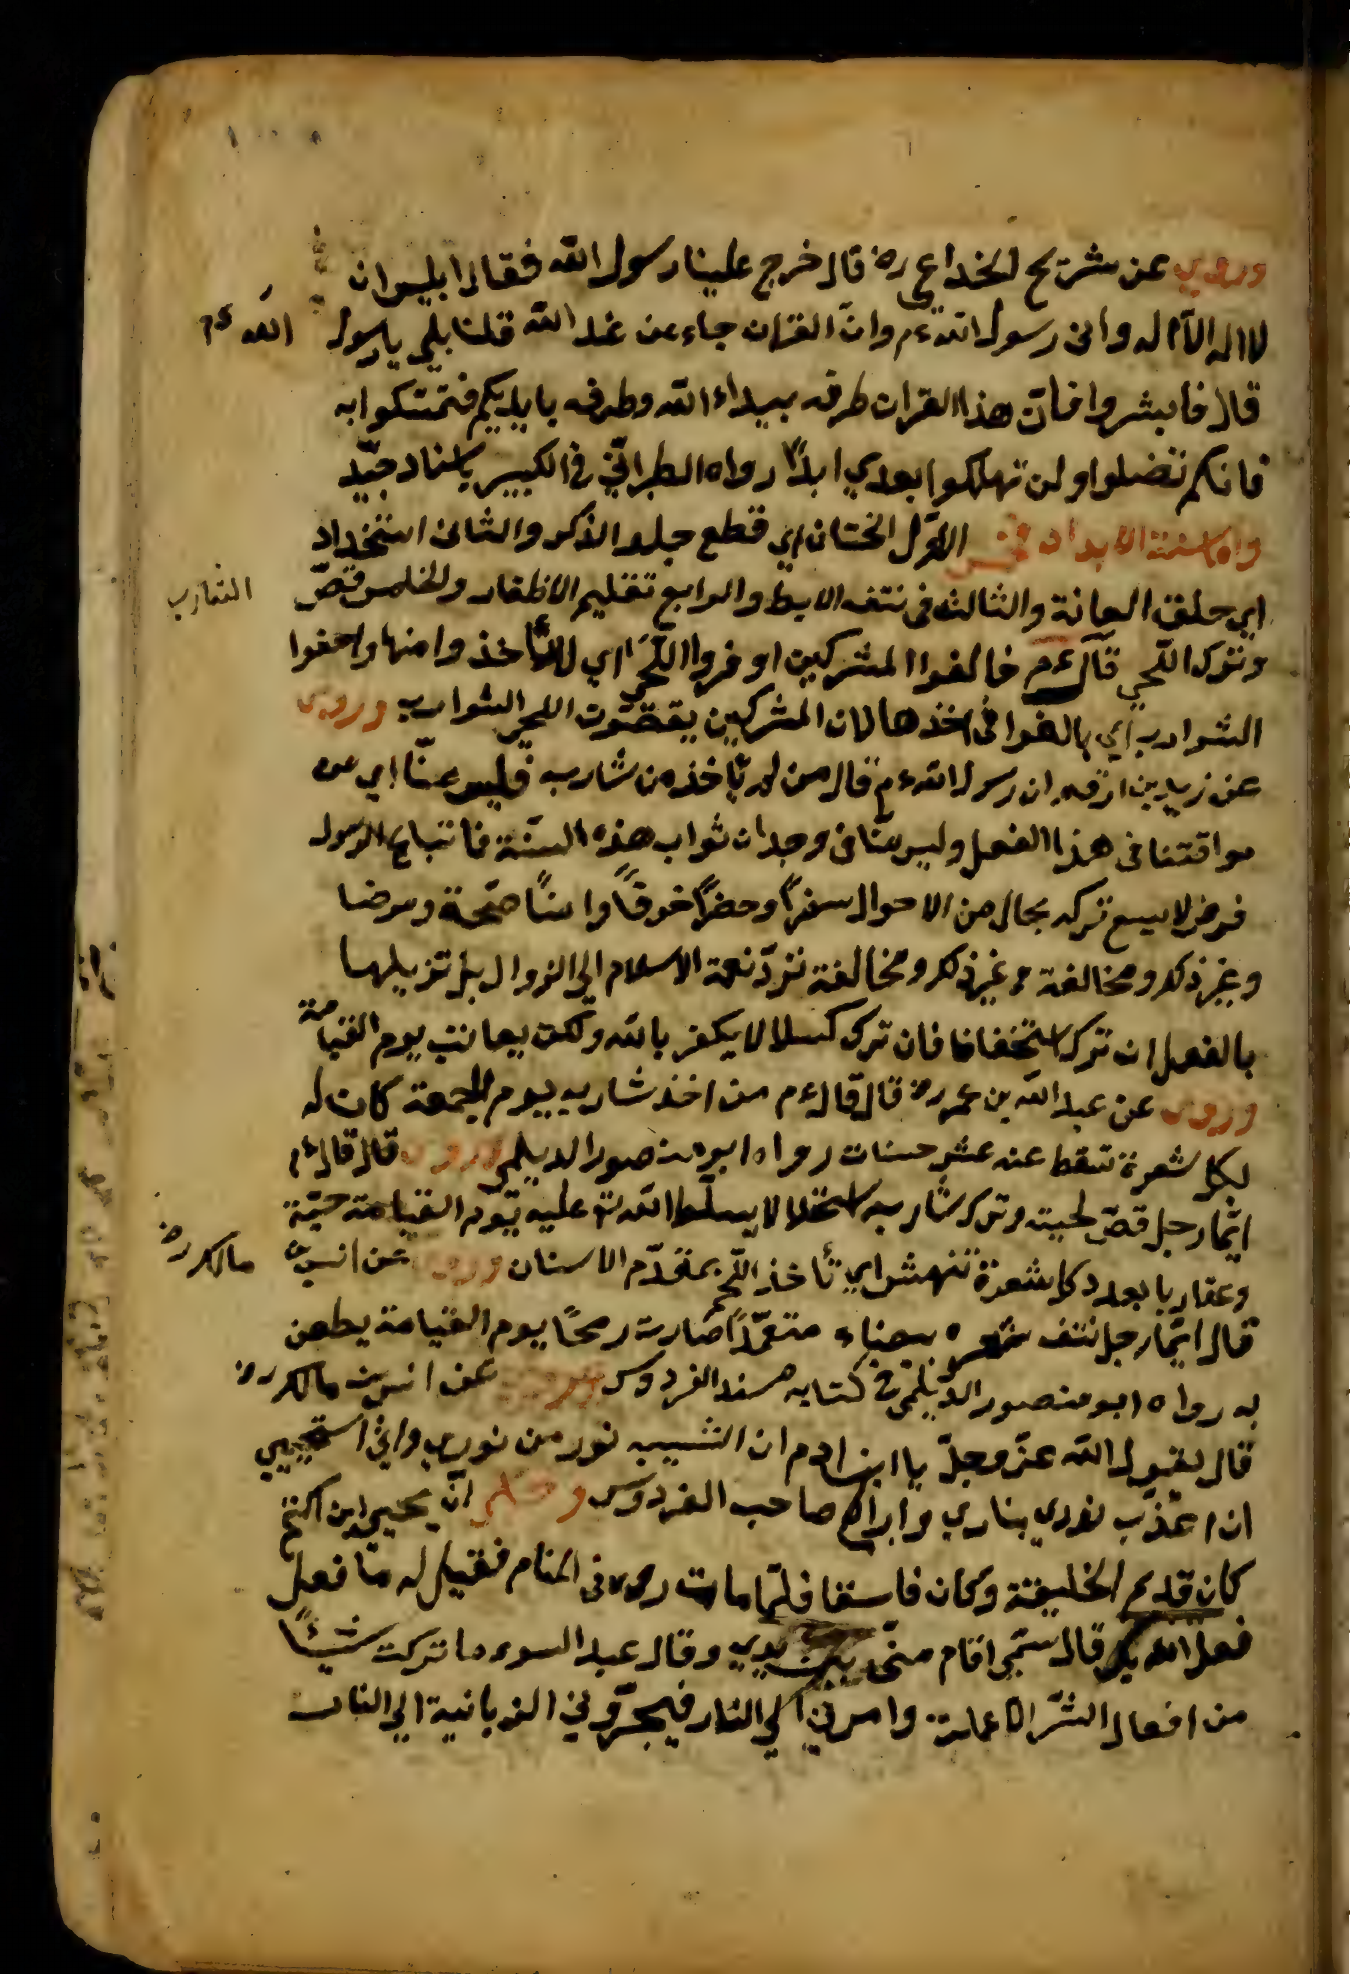 وروي عن شريح الخداعي رض قال خرج علينا رسول الله فقال اليس ان
لا اله الا اله واني رسول الله ءم وان القران جاء عن عند الله قلنا بلي يا رسول الله ءم
قال فابشروا فان هذا القران طرفه بيد الله وطرفه بايديكم فتمسكوا به
فانكم تضلوا ولن تهلكوا بعدي ابدًا رواه الطبراني في الكبير باسناد جيّد
واما سنة الابدان فخمس الاوّل الختان اي قطع جلد الذكر والثاني استخداد
اي حلق العانة والثالث في نتف الابط والرابع تقليم الاظفار والخامس قصّ الشارب
وترك اللحي قال ءم خالفوا المشركين اوفروا اللحي اي لا تأخذوا منها واحفوا
الشوارب اي بالغوا في اخذها لان المشركين يقصّون اللحي الشوارب وروي
عن زيد بن ارقم ان رسول الله ءم قال من لم يأخذ من شاربه فليس منّا اي من
موافقتنا في هذا الفعل وليس منّا في وجدان ثواب هذه السنّة فاتباع الرسول
فرض لا يسع تركه بحال من الاحوال سفرًا وحضرًا خوفًا وامنًا صحّة ومرضا
وغير ذلك ومخالفة وغير ذلك ومخالفة تردّ نعمة الاسلام الي الزوال بل تزيلها
بالفعل ان ترك استخفافا فان ترك كسلا لا يكفر بالله ولكن يعاتب يوم القيامة
وروي عن عبد الله بن عمر رض قال قال ءم من اخذ شاربه يوم الجمعة كان له
بكل شعرة تسقط عنه عشر حسنات رواه ابو منصور الديلمي وروي قال قال ءم
ايّما رجل قصّ لحيته وترك شاربه استحلالا يسلّط الله تع عليه يوم القيامة حيّة
وعقاربا بعدد كل شعرة تنهش اي تأخذ اللحم بمقدّم الاسنان وروي عن انس بن مالك رض
قال ايّما رجل نتف شعره بيضاء متعمّدًا صارت رمحًا يوم القيامة يطعن
به رواه ابو منصور الديلمي في كتابه مسند الفردوس وروي عن انس بن مالك رض
قال يقول الله عزّ وجلّ يا ابن ادم ان الشيب نور من نوري واني استحيي
ان اعذّب نوري بناري رواه صاحب الفردوس وحكي انّ يحيي ابن اكثم
كان قديم الخليفة وكان فاسقا فلمّا مات رءي في المنام فقيل له ما فعل
فعل الله بك قال اقام منّي بين يدي وقال عبد السوء ما تركت شيئًا
من افعال الشرّ الا عملته وامرني الي النار فيجرّوني الزبانية الي النار